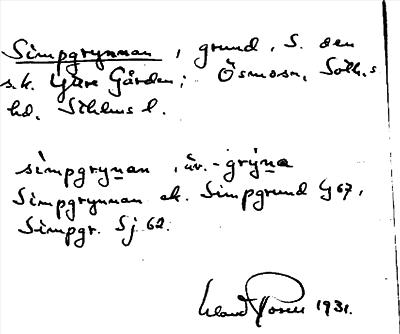 Simpgrynnan, grund, S. om
s.k. Yttre Gården; Ösmo sn, Sotholms
hd, Sthlms l.
simpgrynan, äv. -grýna
Simpgrynnan ek. Simpgrund G 67,
Simpgr. Sj 62.
1931.